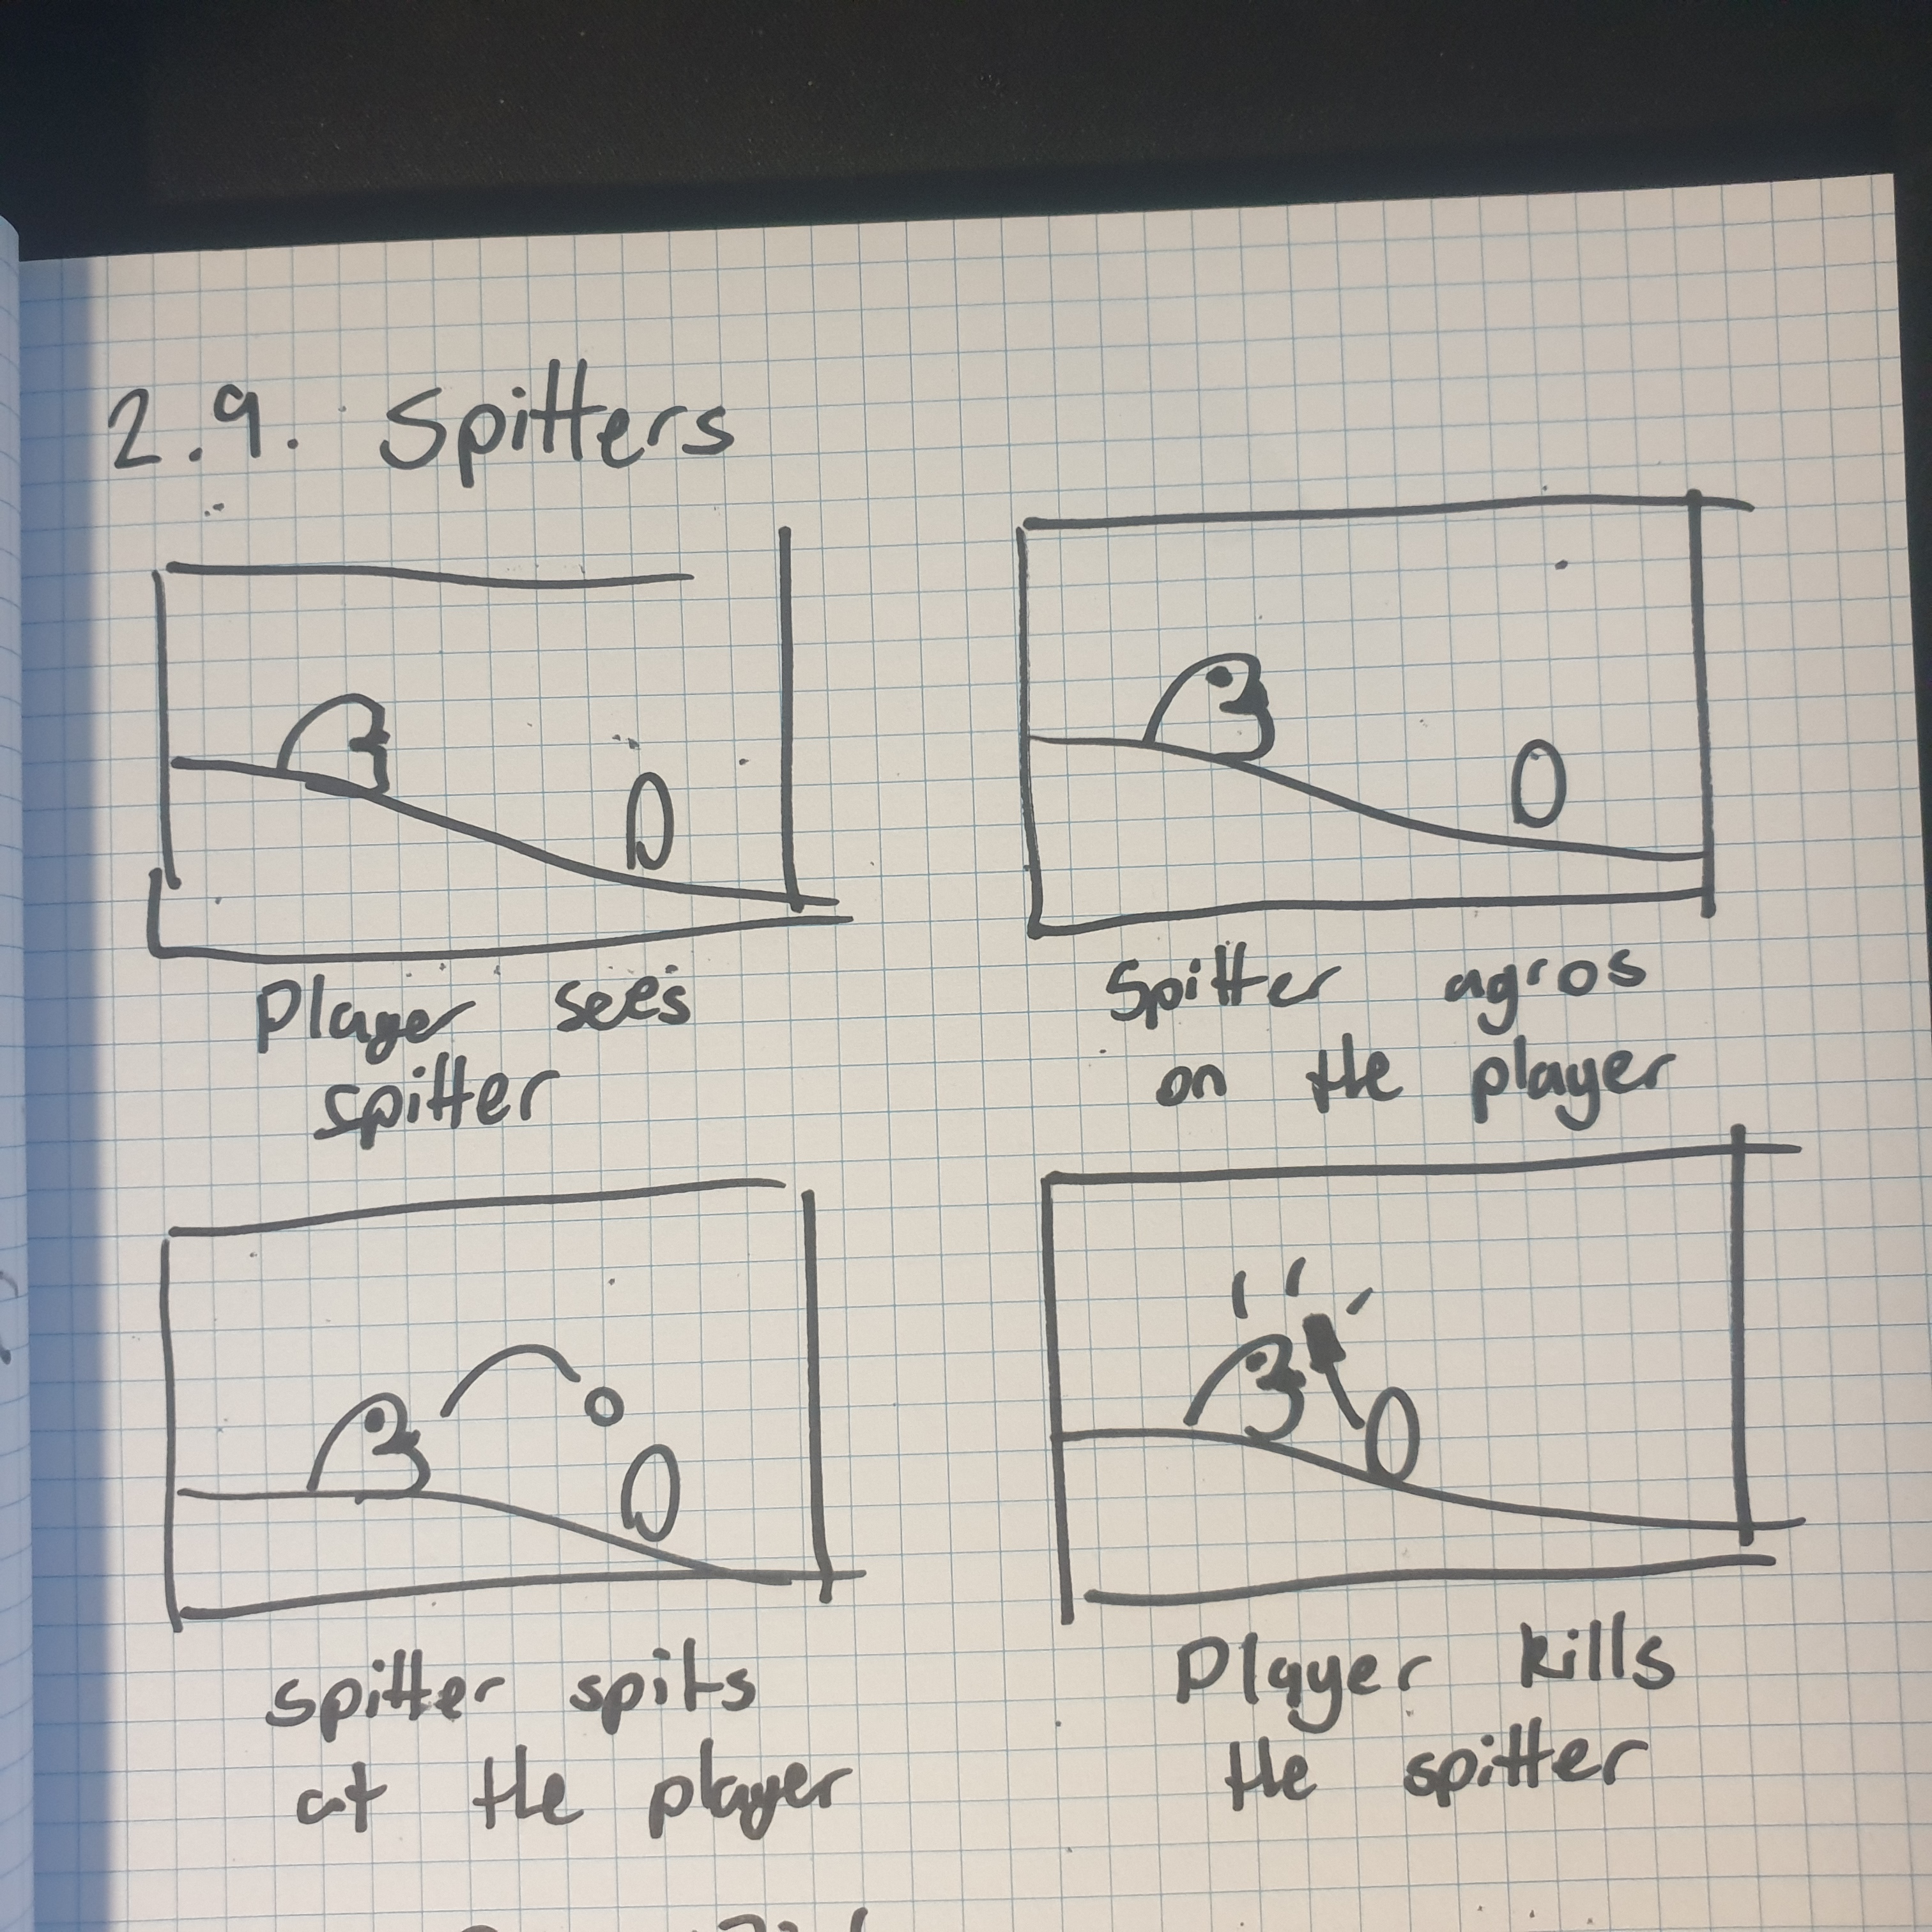 2.9. Spitters
Player sees
spitter
Spitter agros
on the player
spitter spits
at the player
Player kills
the spitter